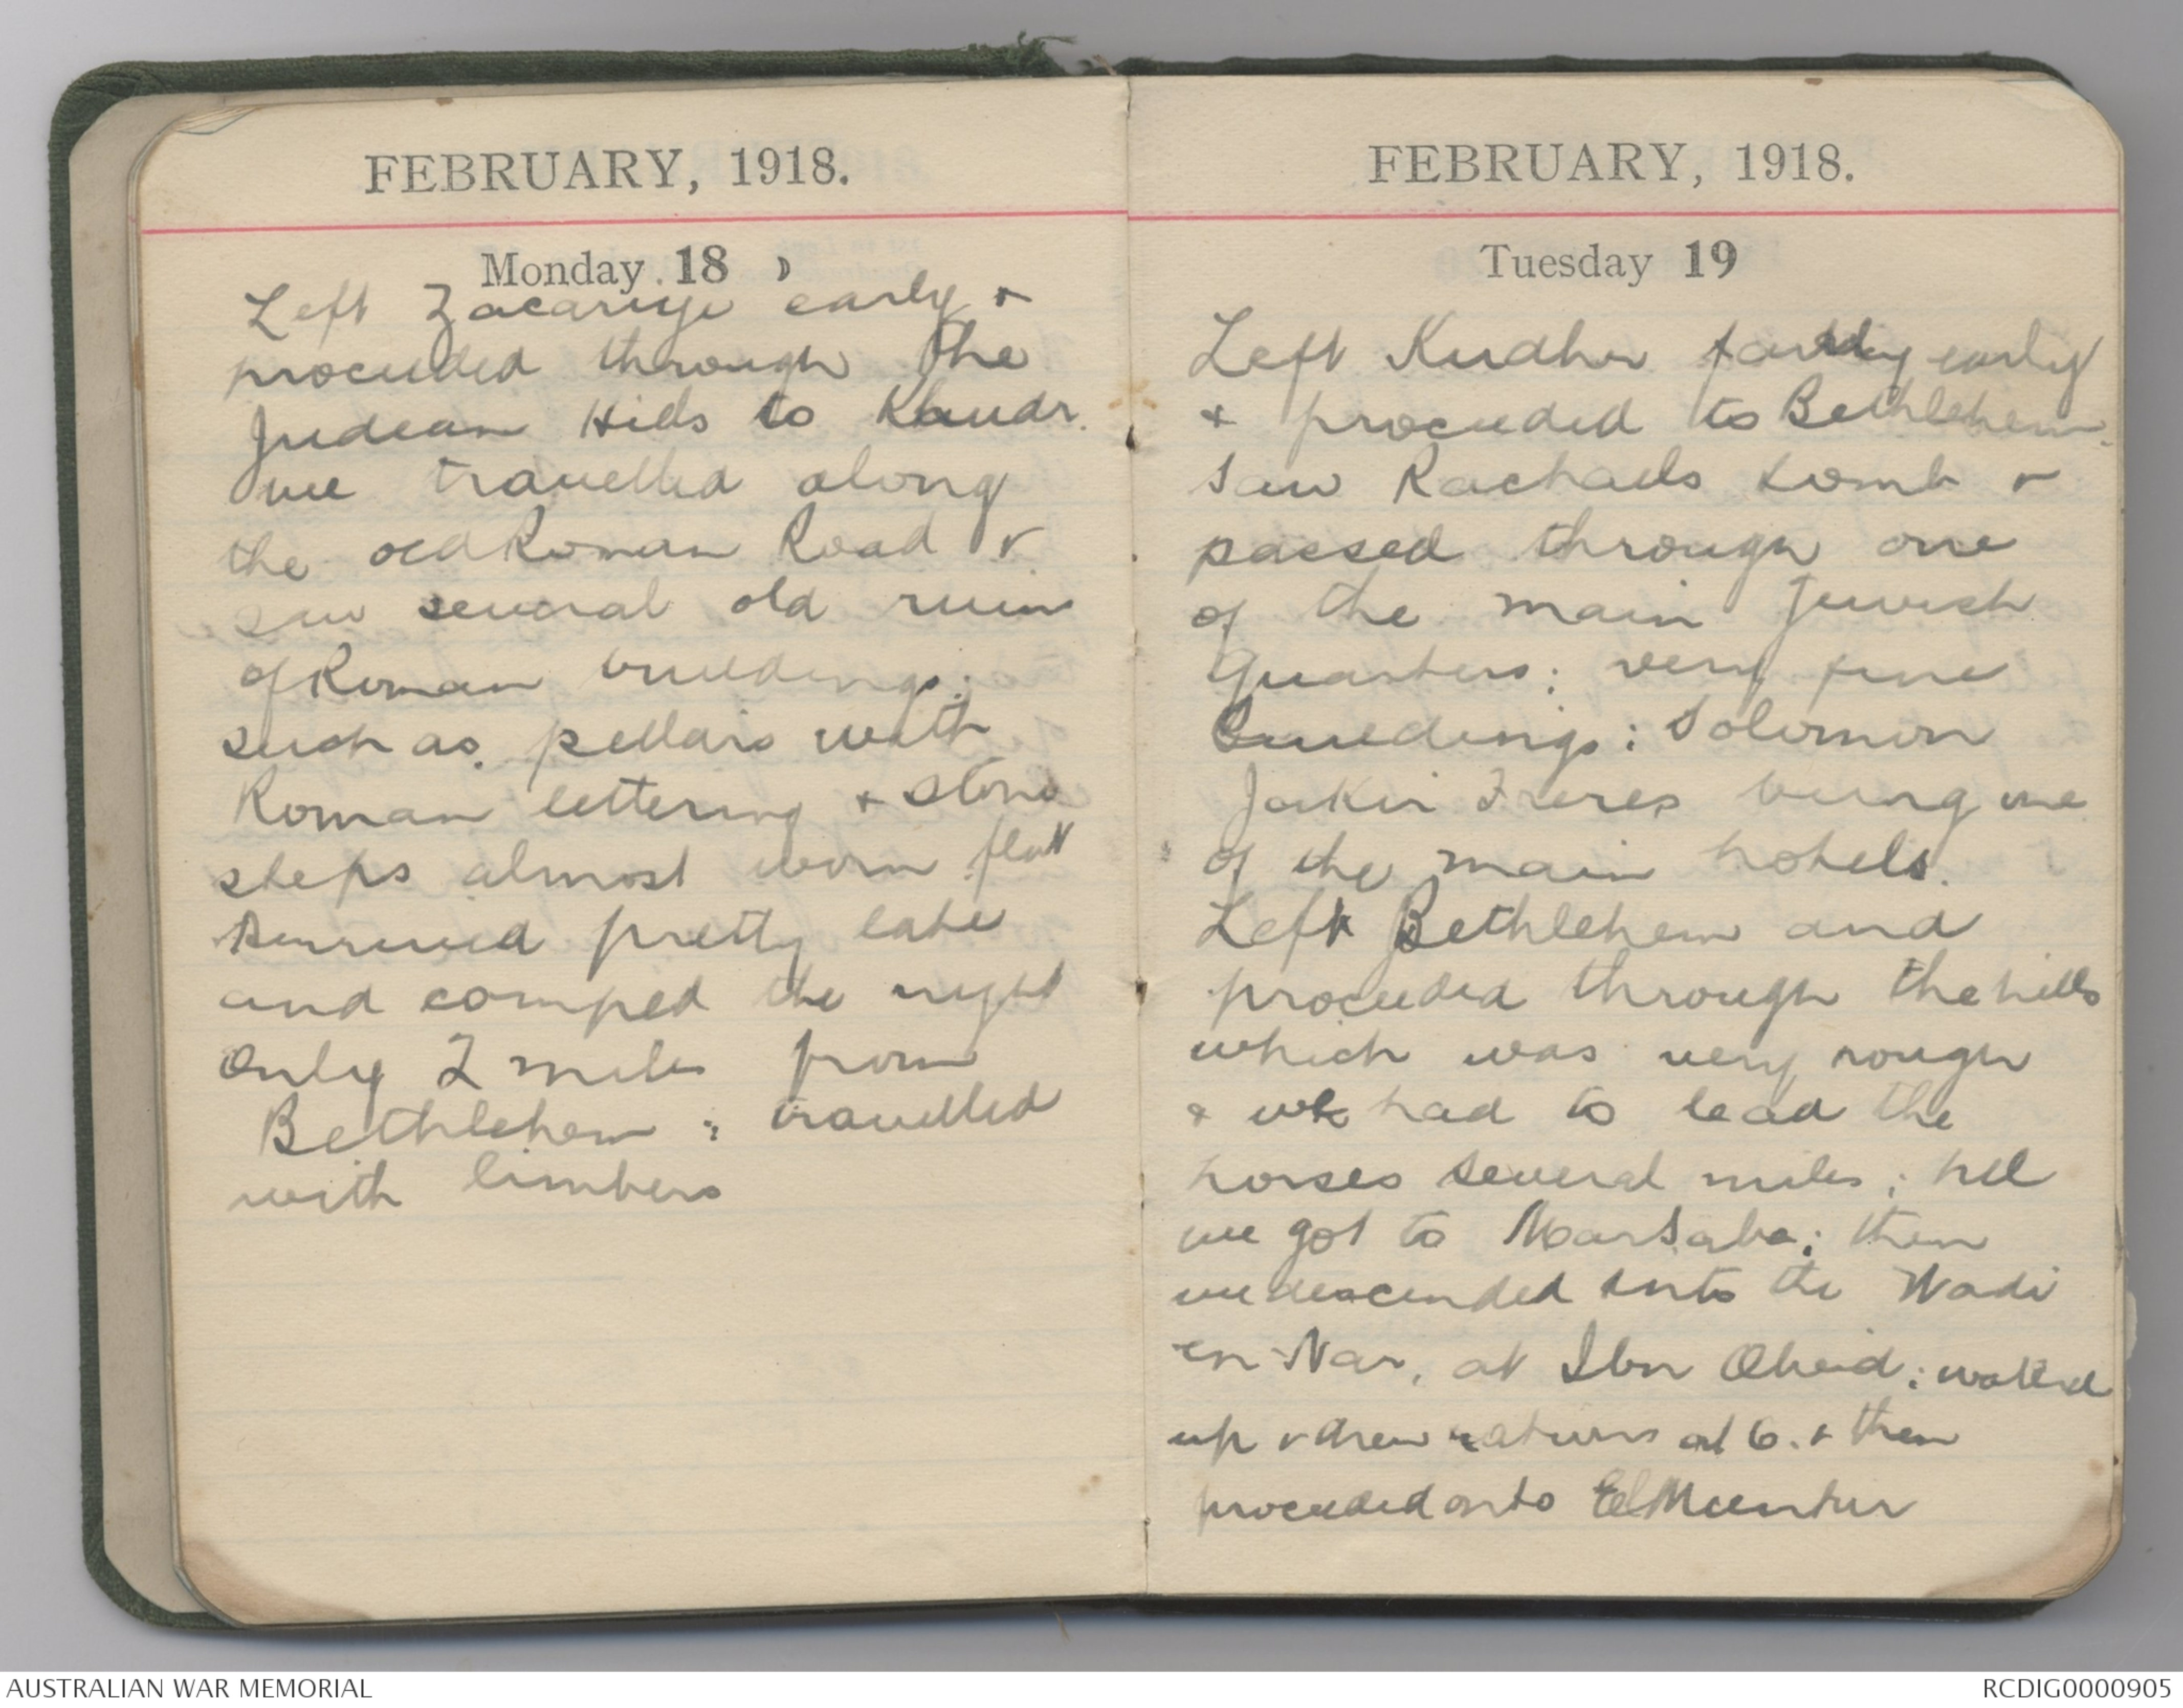 FEBRUARY, 1918.
Monday 18
Left Zacariye early &
proceeded through the
Judean Hills to Khudr.
we travelled along
the old Roman Road &
saw several old ruins
of Roman buildings;
such as pellars with
Roman lettering & stone
steps almost worn flat
arrived pretty late
and comped the night
only 2 miles from
Bethlehem; travelled
with limbers
FEBRUARY, 1918.
Tuesday 19
Left Kudhr early
& proceeded to Bethlehem.
saw Rachaels tomb &
passed through one
of the main Jewish
Quarters; very fine
Buildings: Solomon
Jakir Freres being one
of the main hotels.
Left Bethlehem and
proceeded through the hills
which was very rough
& we had to lead the
horses several miles; till
we got to MarSaba; then
we descended into the Wadi
en-Nar, at Ibn Obeid;
up & drew rations at 6. & then
proceeded onto El Muntur
AUSTRALIAN WAR MEMORIAL
RCDIG0000905